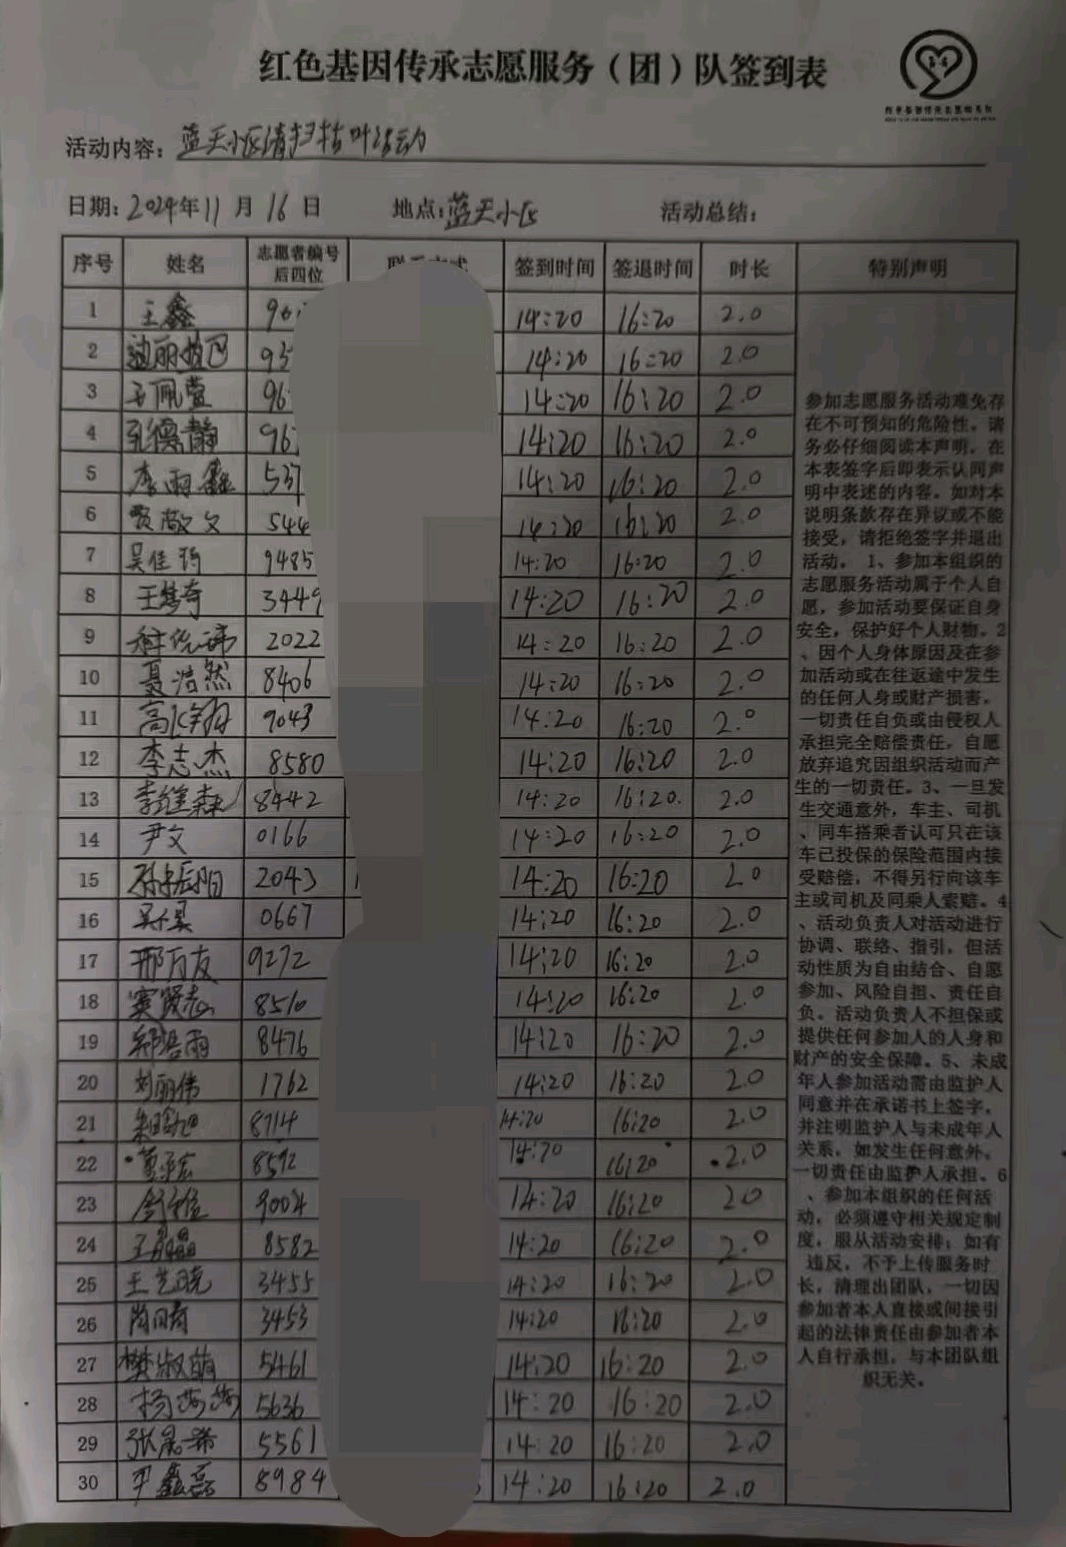 红色基因传承志愿服务（团）队签到表
活动内容：蓝天小区清扫枯叶活动
日期：2024年11月16日 地点：蓝天小区 活动总结：
序号 姓名 志愿者编号后四位 签到时间 签退时间 时长 特别声明
1 王鑫 96 14:20 16:20 2.0
2 迪丽拉巴 93 14:20 16:20 2.0
3 王佩萱 96 14:20 16:20 2.0
4 德静 967 14:20 16:20 2.0
5 李雨鑫 537 14:20 16:20 2.0
6 贾敬文 544 14:20 16:20 2.0
7 吴佳 9485 14:20 16:20 2.0
8 王梦奇 3449 14:20 16:20 2.0
9 2022 14:20 16:20 2.0
10 聂浩然 8406 14:20 16:20 2.0
11 高 9043 14:20 16:20 2.0
12 李志杰 8580 14:20 16:20 2.0
13 李继森 8442 14:20 16:20. 2.0
14 尹文 0166 14:20 16:20 2.0
15 阳 2043 14:20 16:20 2.0
16 吴昊 0667 14:20 16:20 2.0
17 邢万友 9272 14:20 16:20 2.0
18 窦贤志 8510 14:20 16:20 2.0
19 雨 8476 14:20 16:20 2.0
20 刘丽伟 1762 14:20 16:20 2.0
21 旭 8714 14:20 16:20 2.0
22 8592 14:20 16:20 2.0
23 9004 14:20 16:20 2.0
24 王晶 8582 14:20 16:20 2.0
25 王艺晓 3455 14:20 16:20 2.0
26 3453 14:20 16:20 2.0
27 樊淑萌 5461 14:20 16:20 2.0
28 杨莎莎 5636 14:20 16:20 2.0
29 张晨希 5561 14:20 16:20 2.0
30 尹鑫磊 8984 14:20 16:20 2.0
参加志愿服务活动难免存
在不可预知的危险性。请
务必仔细阅读本声明，在
本表签字后即表示认同声
明中表述的内容。如对本
说明条款存在异议或不能
接受，请拒绝签字并退出
活动。1、参加本组织的
志愿服务活动属于个人自
愿，参加活动要保证自身
安全，保护好个人财物。2
、因个人身体原因及在参
加活动或在往返途中发生
的任何人身或财产损害，
一切责任自负或由侵权人
承担完全赔偿责任，自愿
放弃追究因组织活动而产
生的一切责任。3、一旦发
生交通意外，车主、司机
、同车搭乘者认可只在该
车已投保的保险范围内接
受赔偿，不得另行向该车
主或司机及同乘人索赔。4
、活动负责人对活动进行
协调、联络、指引，但活
动性质为自由结合、自愿
参加、风险自担、责任自
负。活动负责人不担保或
提供任何参加人的人身和
财产的安全保障。5、未成
年人参加活动需由监护人
同意并在承诺书上签字，
并注明监护人与未成年人
关系，如发生任何意外，
一切责任由监护人承担。6
、参加本组织的任何活
动，必须遵守相关规定制
度，服从活动安排；如有
违反，不予上传服务时
长，清理出团队，一切因
参加者本人直接或间接引
起的法律责任由参加者本
人自行承担，与本团队组
织无关。